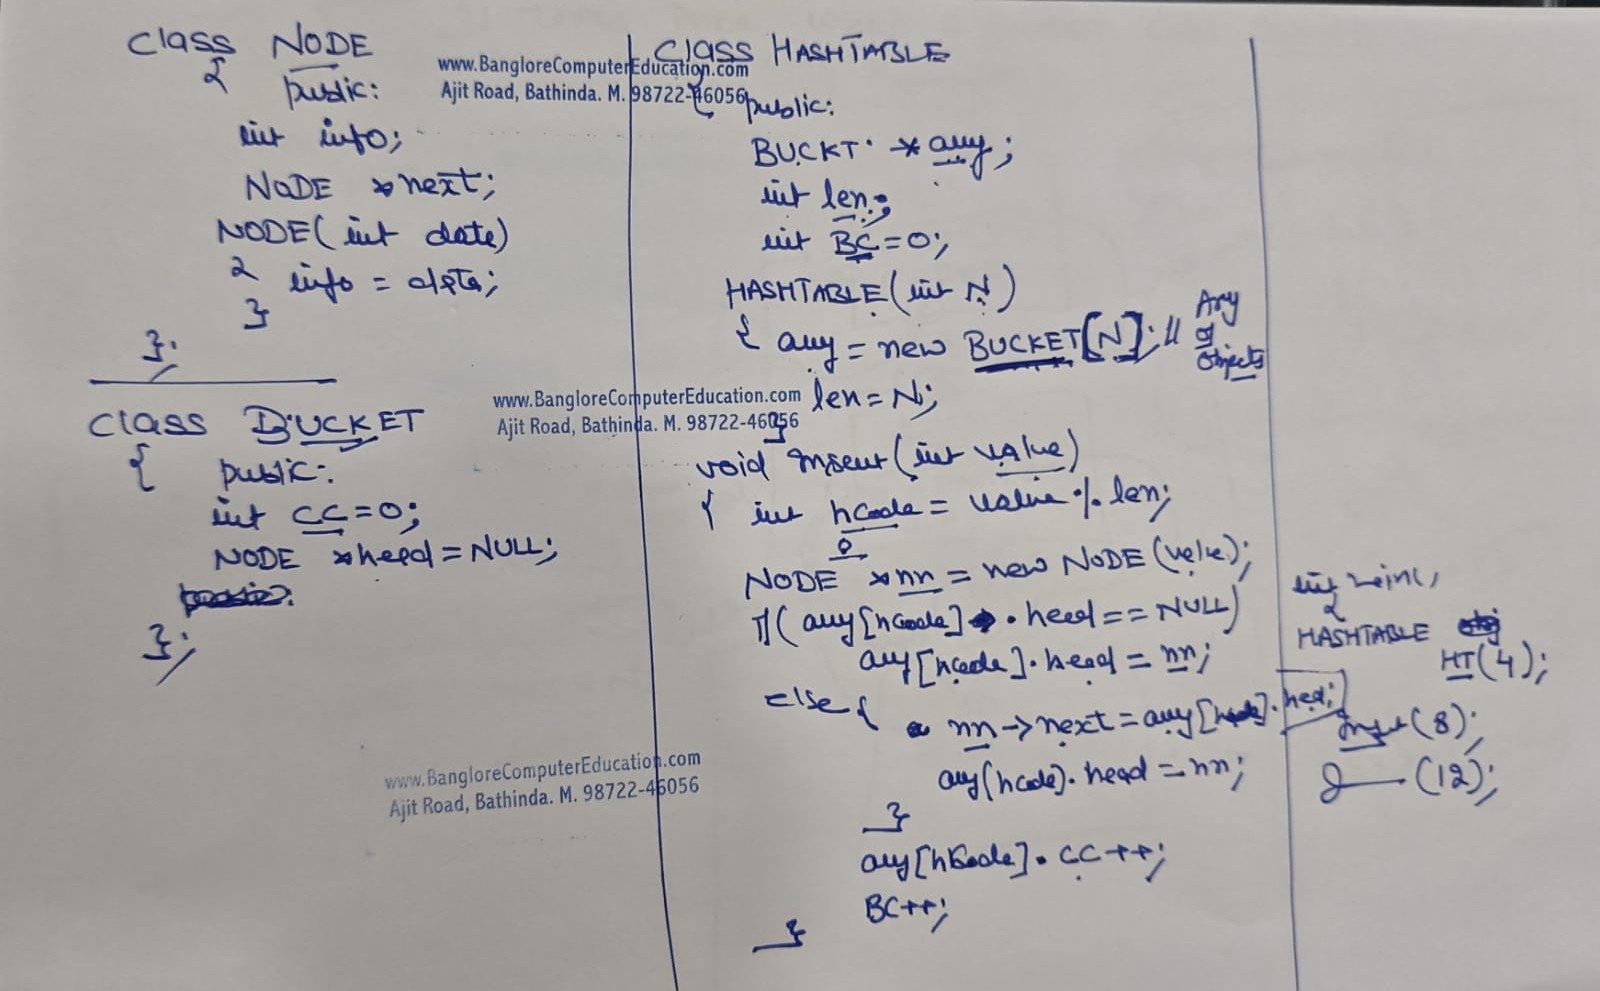 class NODE
{ public:
int info;
NODE *next;
NODE(int date)
{ info = data;
}
};
class BUCKET
{ public:
int CC=0;
NODE *head=NULL;
};
www.BangloreComputerEducation.com
Ajit Road, Bathinda. M. 98722-46056
www.BangloreComputerEducation.com
Ajit Road, Bathinda. M. 98722-46056
www.BangloreComputerEducation.com
Ajit Road, Bathinda. M. 98722-46056
class HASHTABLE
{ public:
BUCKT *arry;
int len;
int BC=0;
HASHTABLE(int N)
{ arry = new BUCKET[N]; // Arry
of
Objects
len=N;
}
void Insert(int value)
{ int hCode = value % len;
0
NODE *nn = new NODE(value);
if(arry[hCode].head==NULL)
arry[hCode].head=nn;
else{ nn->next=arry[hCode].head;
arry[hCode].head=nn;
}
arry[hCode].CC++;
BC++;
}
int main()
{
HASHTABLE
HT(4);
(8);
(12);